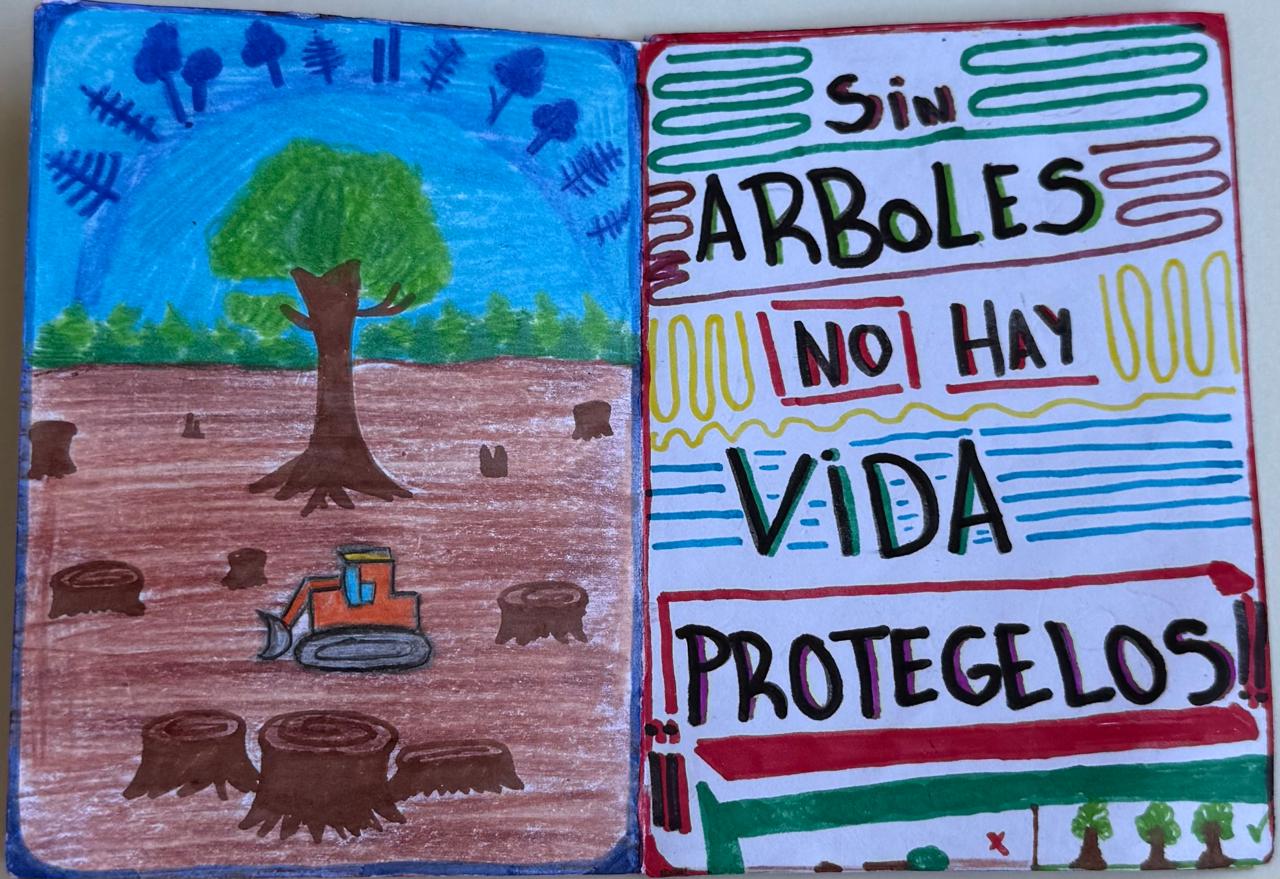 Sin
ARBOLES
NO HAY
ViDA
¡¡PROTEGELOS!!